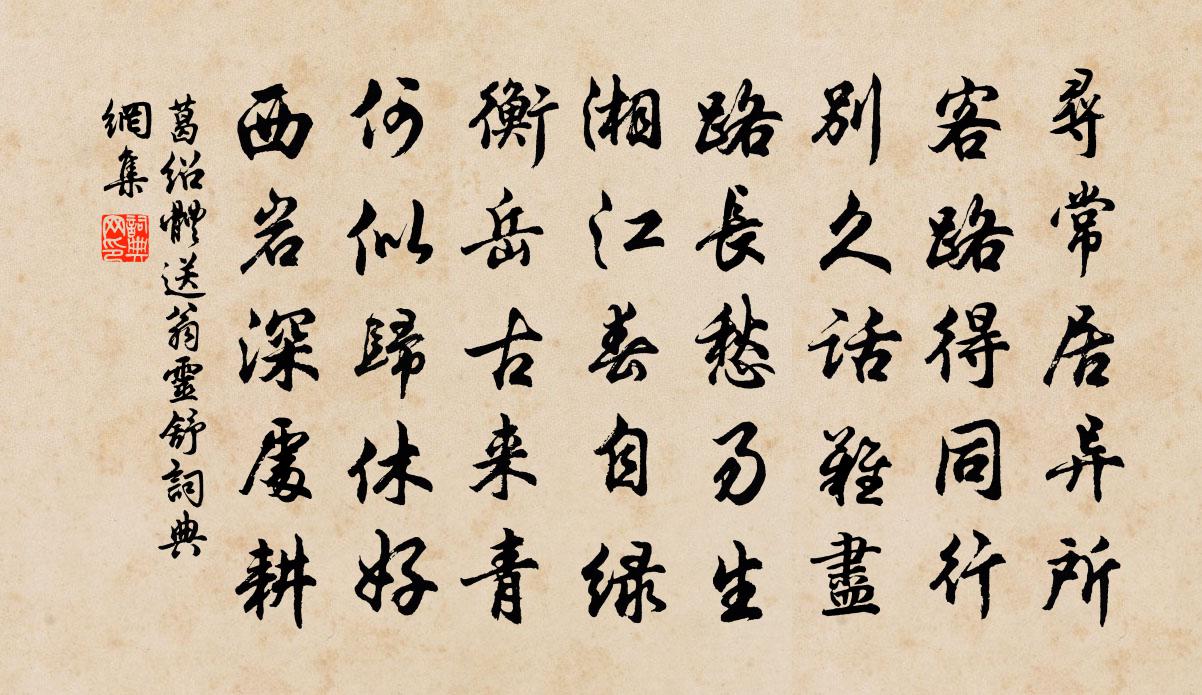 尋常居异所
客路得同行
別久話難盡
路長愁易生
湘江春自绿
衡岳古来青
何似歸休好
西岩深處耕
葛绍體送翁靈舒詞典
網集
詞典
网印